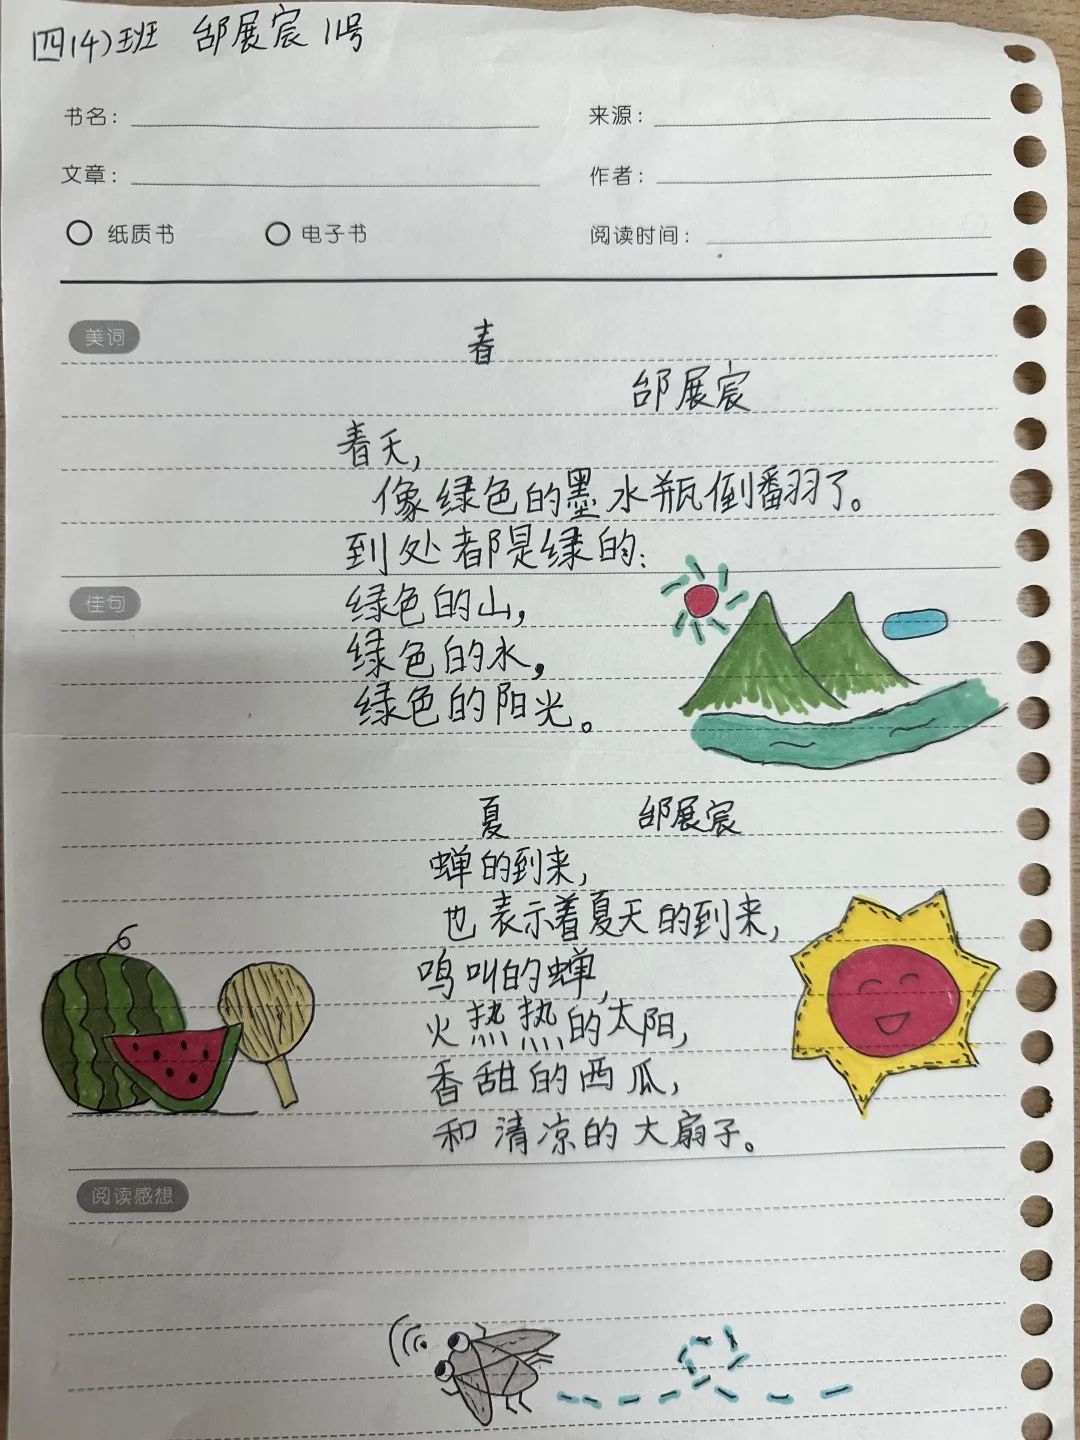 四(4)班 邰展宸 11号
书名：
来源：
文章：
作者：
纸质书
电子书
阅读时间：
美词
春
邰展宸
春天，
像绿色的墨水瓶倒翻了。
到处都是绿的：
佳句
绿色的山，
绿色的水，
绿色的阳光。
夏 邰展宸
蝉的到来，
也表示着夏天的到来，
鸣叫的蝉，
火热热的太阳，
香甜的西瓜，
和清凉的大扇子。
阅读感想